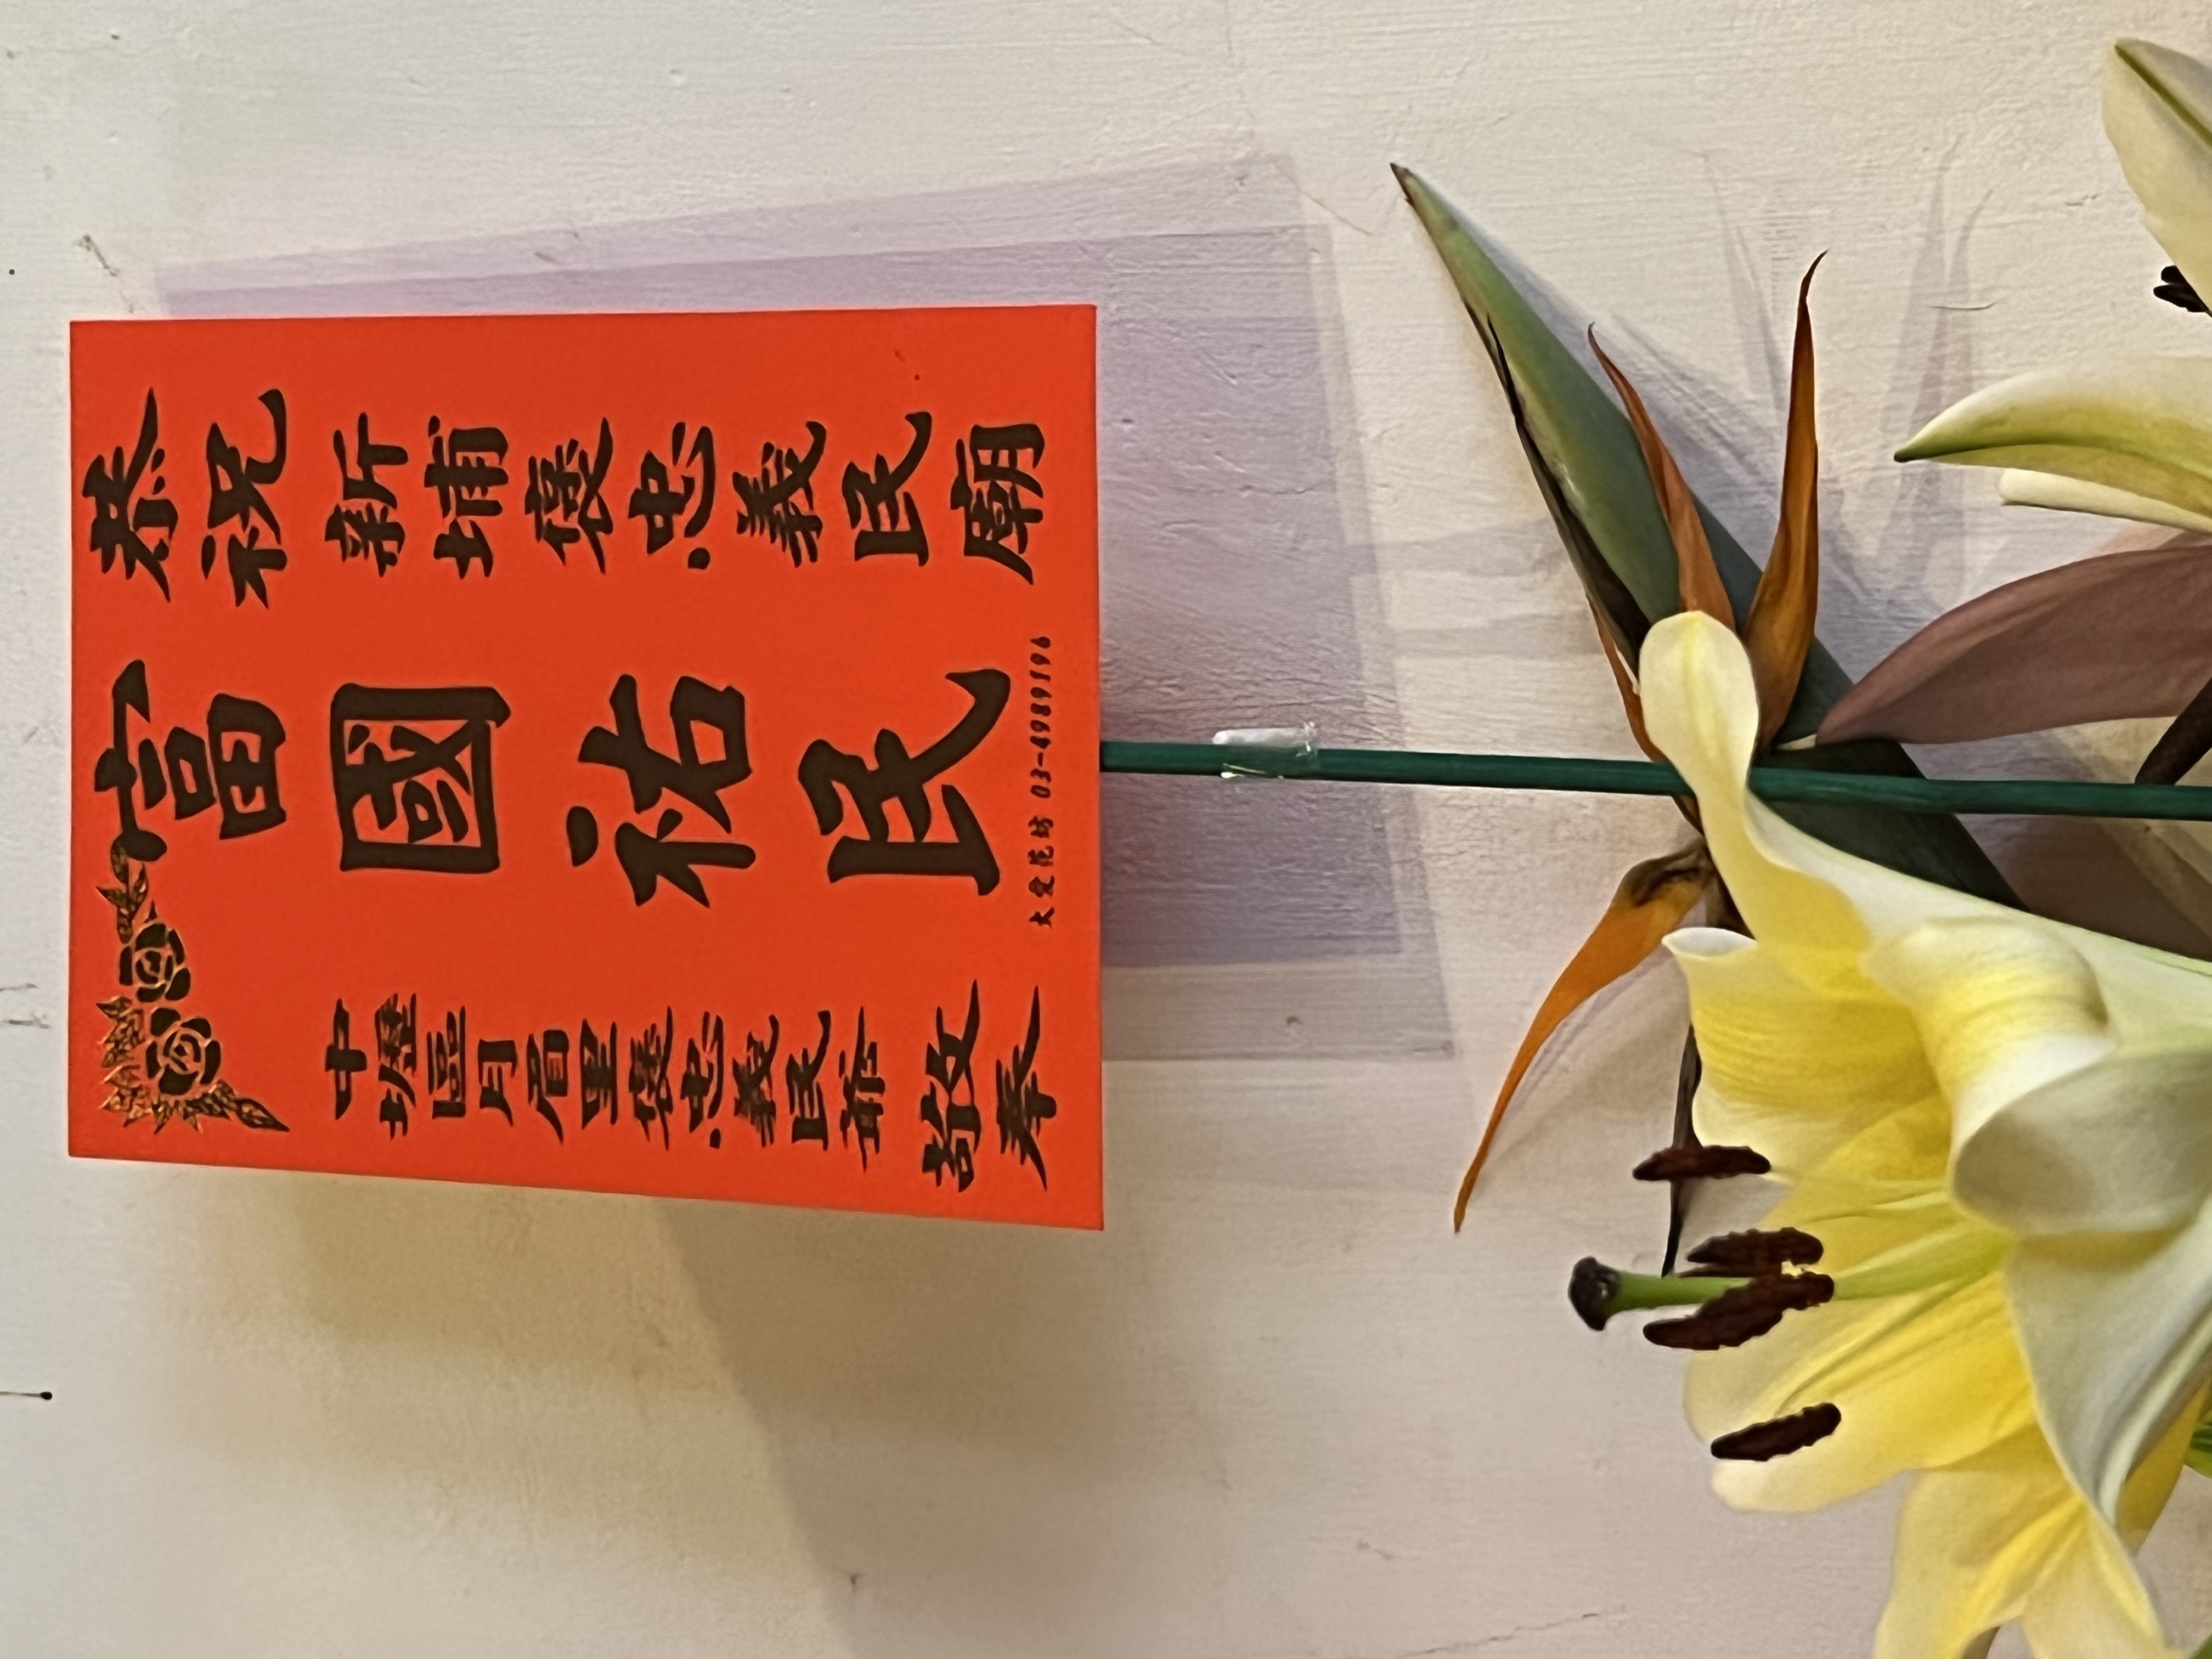 恭祝 新埔褒忠義民廟
富國祐民
大愛花坊 03-4989196
中壢區月眉里褒忠義民爺 敬奉